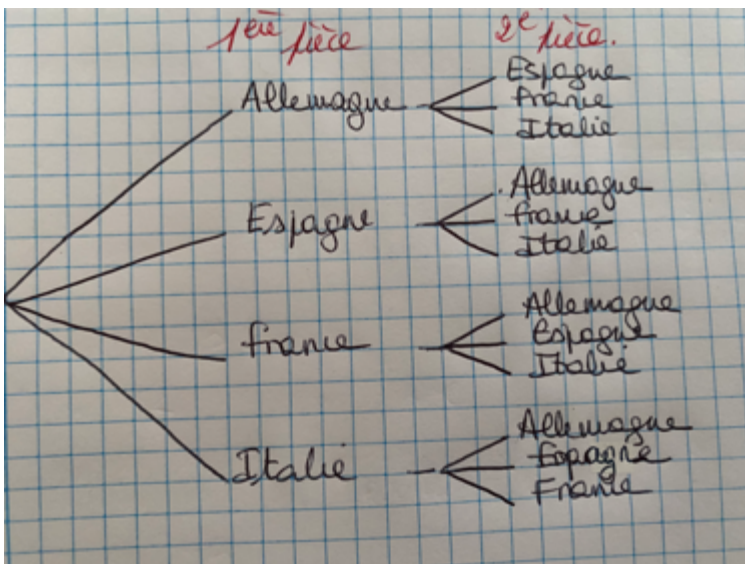 1ère pièce 2e pièce.
Allemagne
Espagne
France
Italie
Espagne
Allemagne
France
Italie
France
Allemagne
Espagne
Italie
Italie
Allemagne
Espagne
France